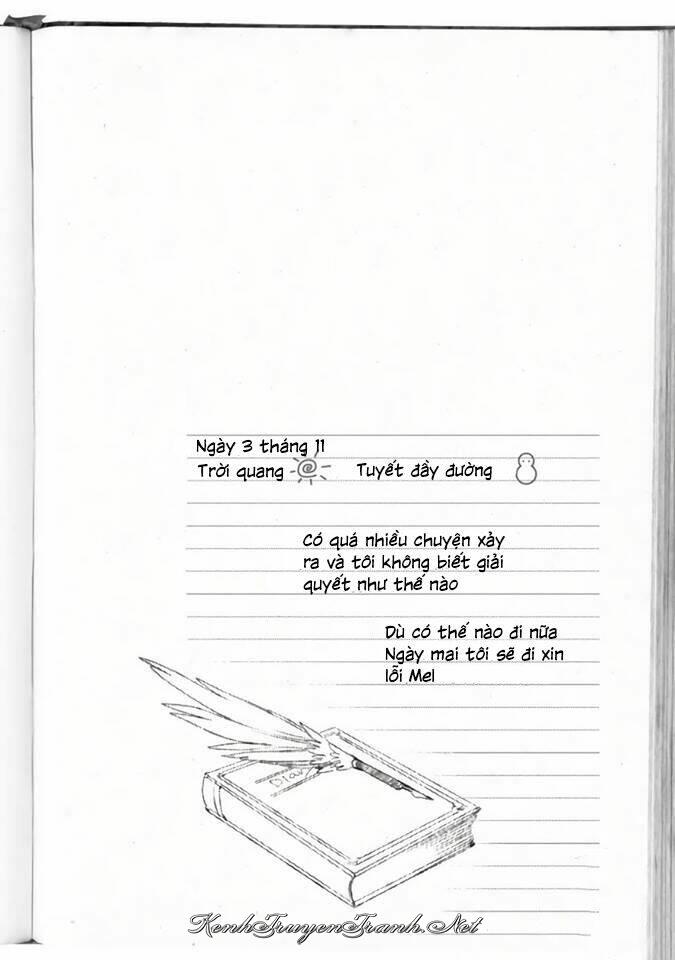 Ngày 3 tháng 11
Trời quang Tuyết đầy đường
Có quá nhiều chuyện xảy
ra và tôi không biết giải
quyết như thế nào
Dù có thế nào đi nữa
Ngày mai tôi sẽ đi xin
lỗi Mel
KenhTruyenTranh.Net